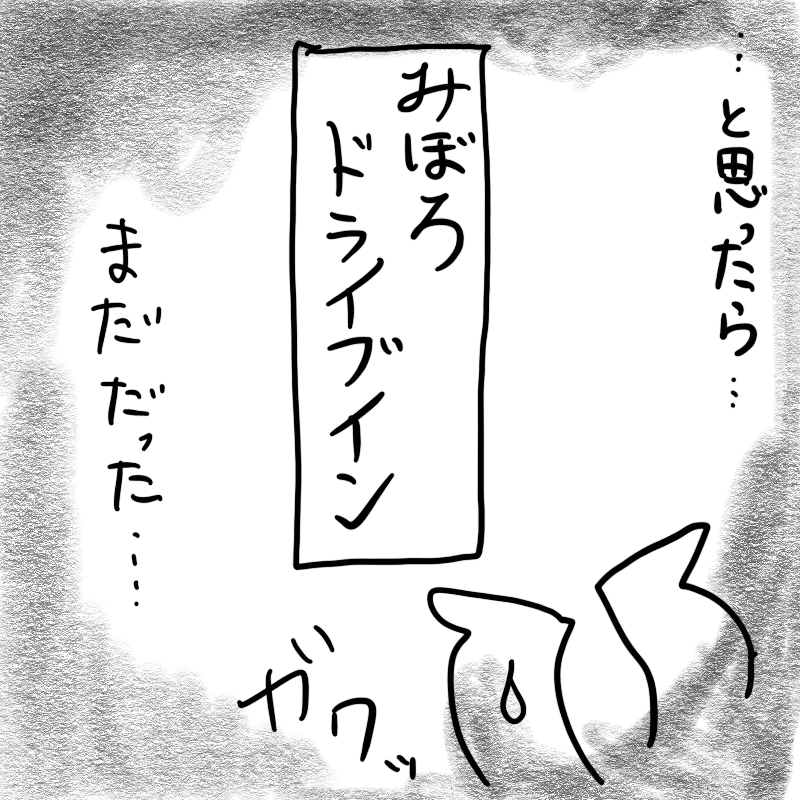 …と思ったら…
みぼろ
ドライブイン
まだだった……
ガワッ